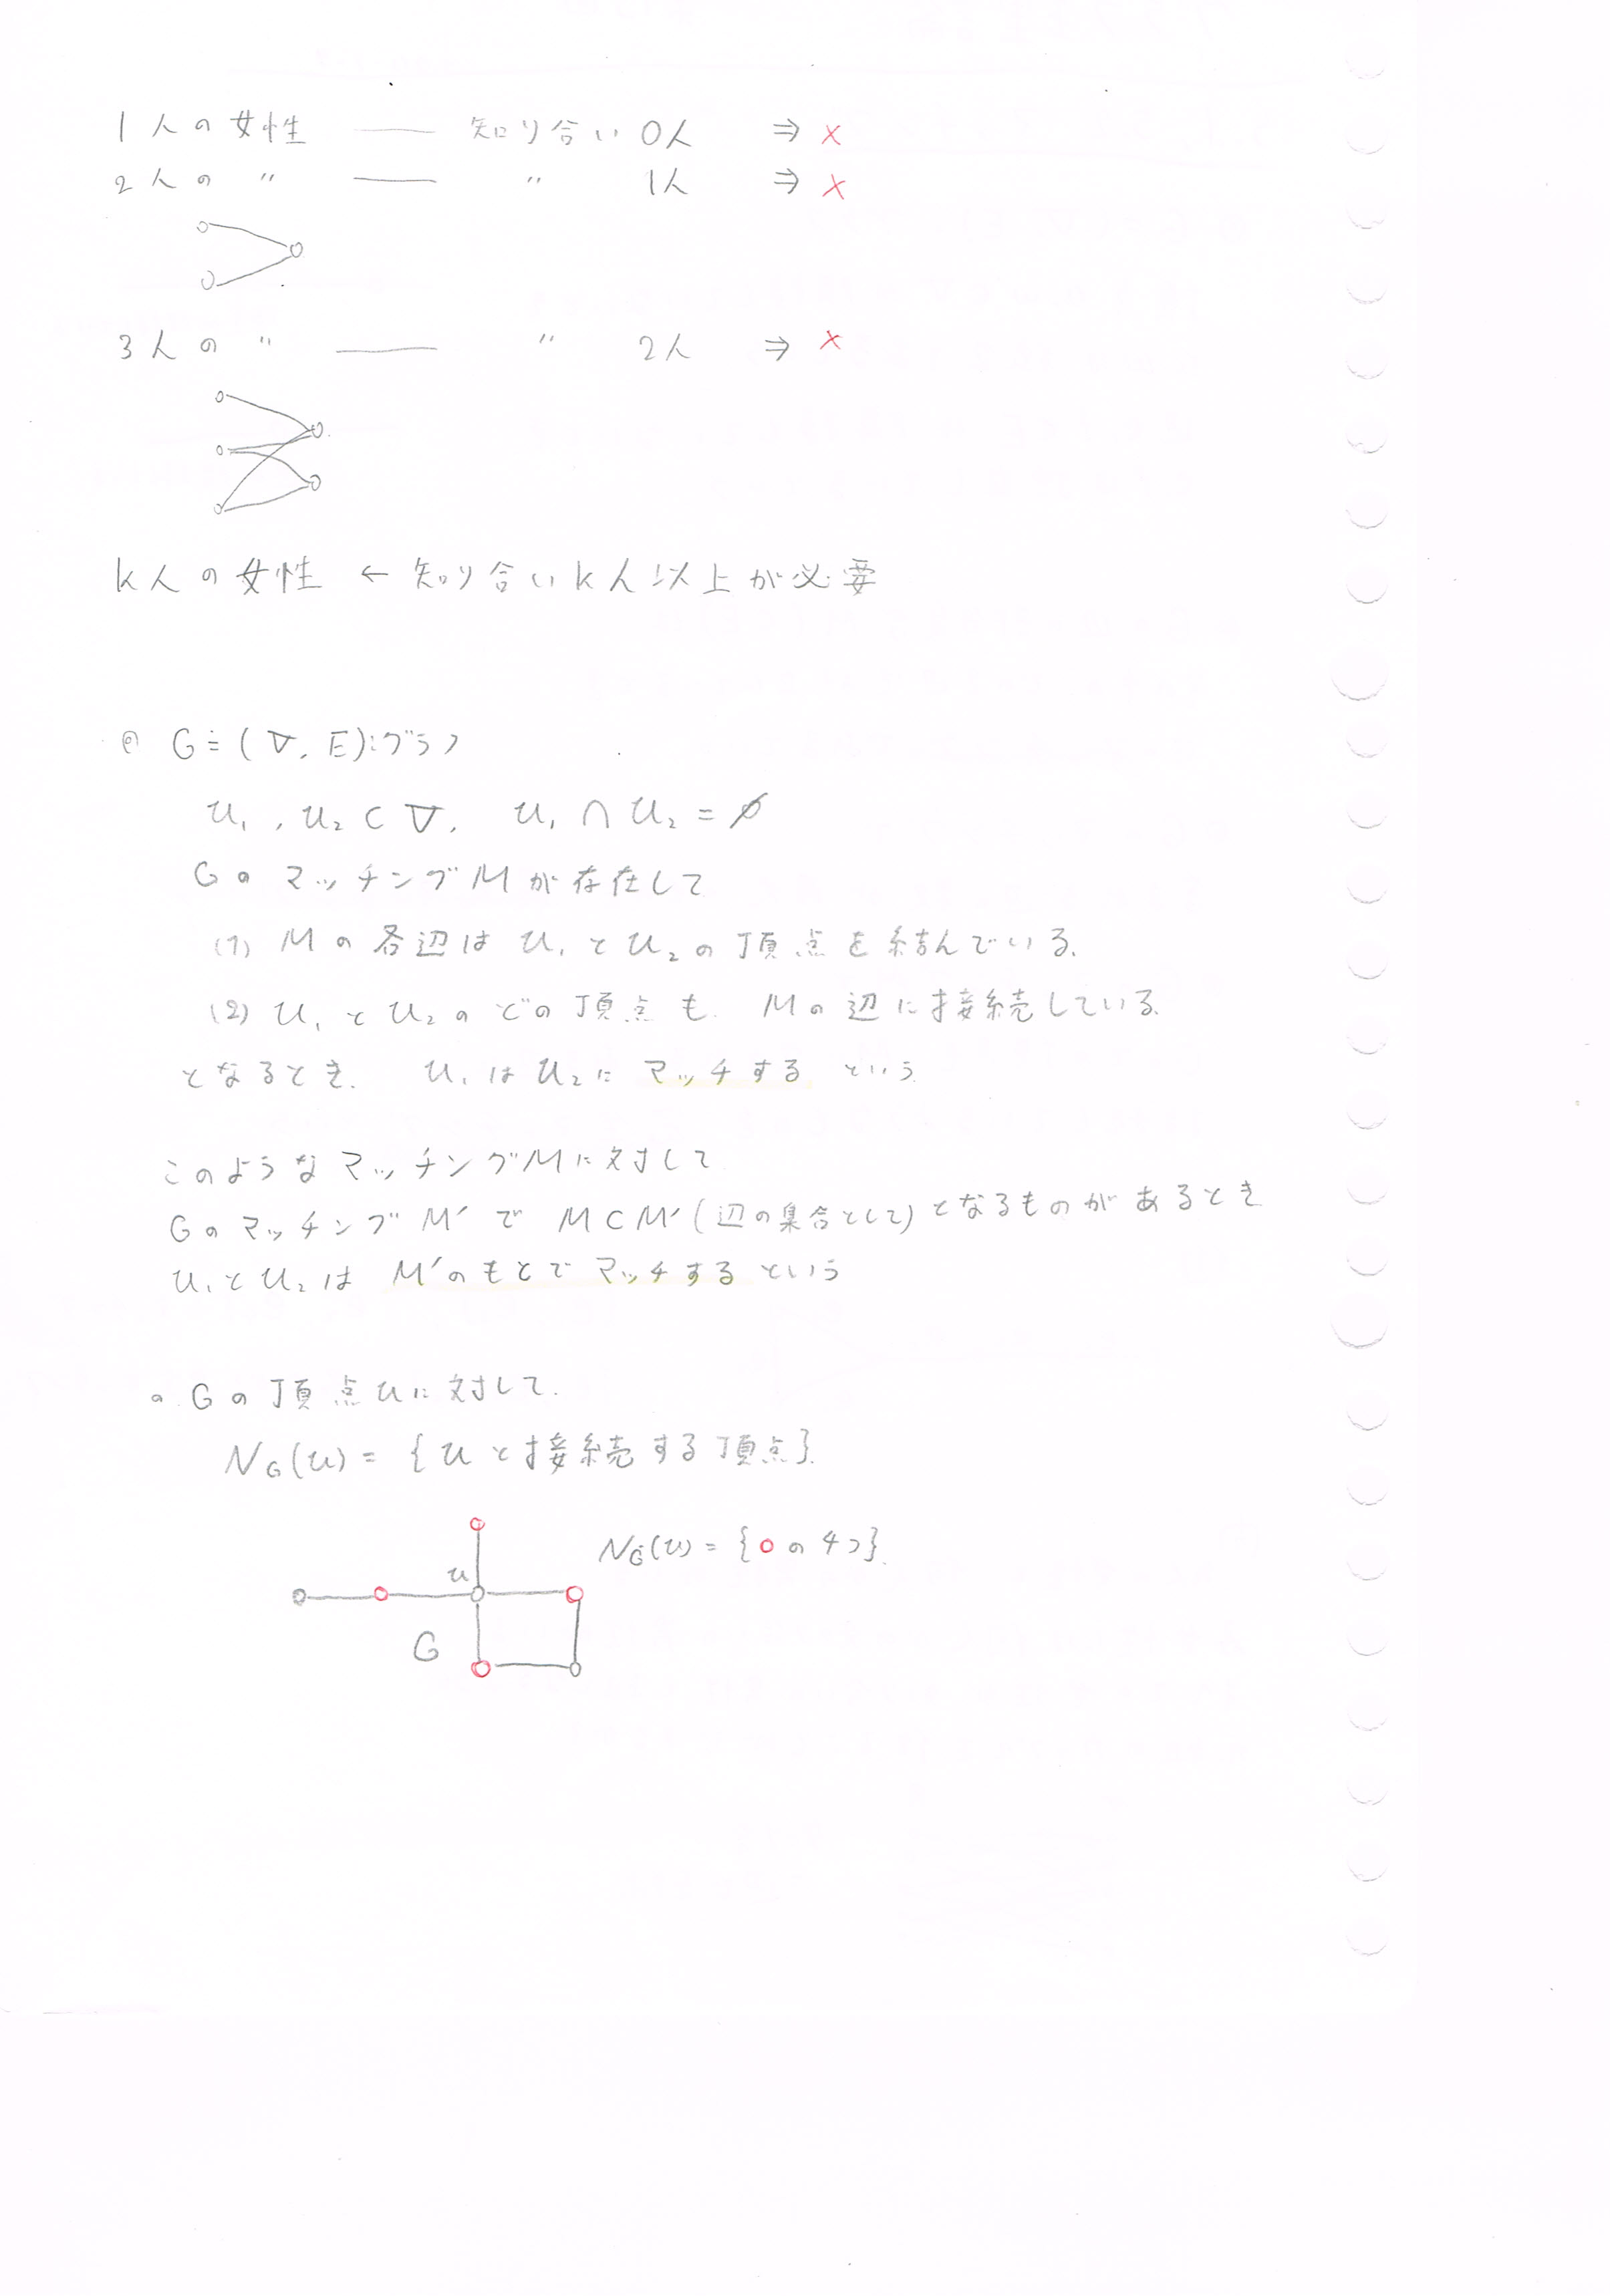 1人の女性 —— 知り合い 0人 ⇒ ×
2人の 〃 —— 〃 1人 ⇒ ×
3人の 〃 —— 〃 2人 ⇒ ×
k人の女性 ← 知り合いk人以上が必要
◎ G=(V, E):グラフ
U₁, U₂ ⊂ V, U₁ ∩ U₂ = ∅
GのマッチングMが存在して
(1) Mの各辺はU₁とU₂の頂点を結んでいる.
(2) U₁とU₂のどの頂点も Mの辺に接続している.
となるとき. U₁はU₂に マッチする という
このようなマッチングMに対して
GのマッチングM′で M⊂M′(辺の集合として)となるものがあるとき
U₁とU₂は M′のもとでマッチする という
○ Gの頂点uに対して.
N_G(u) = {uと接続する頂点}.
N_G(u) = {○の4つ}.
u
G